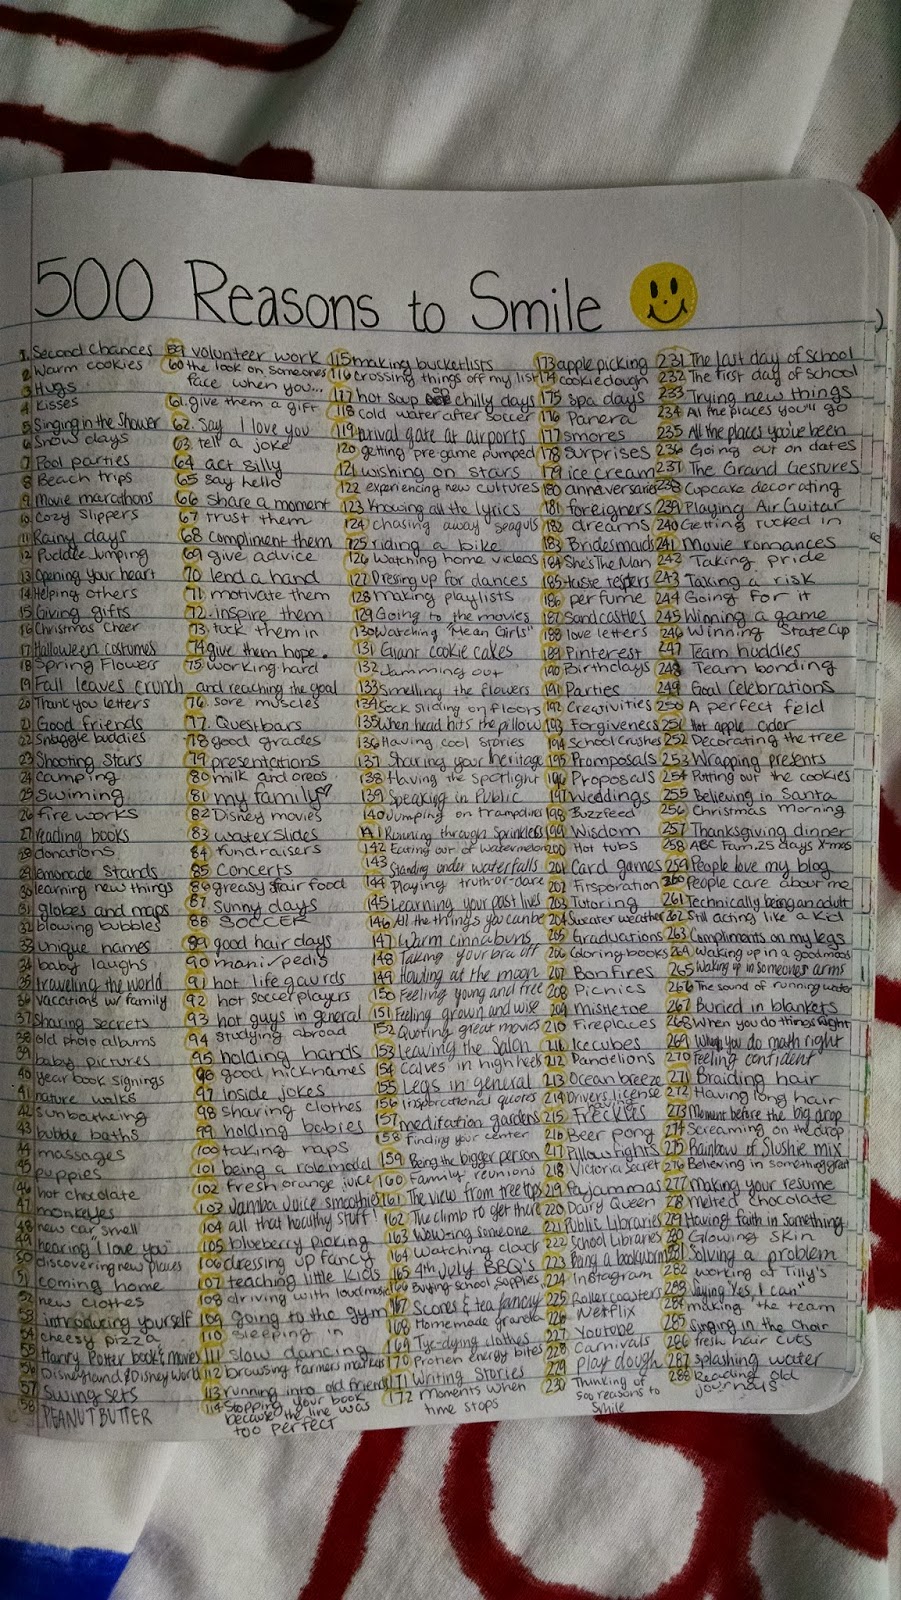 500 Reasons to Smile
1. Second Chances
2 Warm cookies
3 Hugs
4 Kisses
5 Singing in the Shower
6 Snow days
7 Pool parties
8 Beach trips
9 Movie marathons
10 Cozy Slippers
11 Rainy days
12 Puddle Jumping
13 Opening your heart
14 Helping others
15 Giving gifts
16 Christmas Cheer
17 Halloween costumes
18 Spring Flowers
19 Fall leaves crunch
20 Thank you letters
21 Good friends
22 Snuggle buddies
23 Shooting Stars
24 camping
25 swiming
26 fireworks
27 reading books
28 donations
29 lemonade stands
30 learning new things
31 globes and maps
32 blowing bubbles
33 unique names
34 baby laughs
35 traveling the world
36 vacations w/ family
37 sharing secrets
38 old photo albums
39 baby pictures
40 year book signings
41 nature walks
42 sunbatheing
43 bubble baths
44 massages
45 puppies
46 hot chocolate
47 monkeyes
48 new car smell
49 hearing "I love you"
50 discovering new places
51 coming home
52 new clothes
53 introducing yourself
54 cheesy pizza
55 Harry Potter books & movies
56 Disneyland & Disney World
57 Swing sets
58 PEANUT BUTTER
59 volunteer work
60 the look on someones
face when you...
61. give them a gift
62. Say I love you
63 tell a joke
64 act silly
65 say hello
66 share a moment
67 trust them
68 compliment them
69 give advice
70 lend a hand
71 motivate them
72. inspire them
73. tuck them in
74 give them hope.
75 working hard
and reaching the goal
76. sore muscles
77. Quest bars
78 good grades
79 presentations
80 milk and oreos
81 my family
82 Disney movies
83 water slides
84 fundraisers
85 Concerts
86 greasy fair food
87 sunny days
88 SOCCER
89 good hair days
90 mani/pedis
91 hot life gaurds
92 hot soccer players
93 hot guys in general
94 studying abroad
95 holding hands
96 good nicknames
97 inside jokes
98 sharing clothes
99 holding babies
100 taking naps
101 being a rolemodel
102 fresh orange juice
103 Jamba Juice smoothies
104 all that healthy stuff!
105 blueberry picking
106 dressing up fancy
107 teaching little kids
108 driving with loud music
109 going to the gym
110 sleeping in
111 slow dancing
112 browsing farmers markets
113 running into old friends
114 Stopping your book
because the line was
too perfect
115 making bucketlists
116 crossing things off my list
117 hot soup on chilly days
118 cold water after soccer
119 arival gate at airports
120 getting pre game pumped
121 wishing on stars
122 experiencing new cultures
123 Knowing all the lyrics
124 chasing away seaguls
125 riding a bike
126 watching home videos
127 Dresing up for dances
128 making playlists
129 Going to the movies
130 Watching "Mean Girls"
131 Giant cookie cakes
132 Jamming out
133 Smelling the flowers
134 Sock sliding on floors
135 When head hits the pillow
136 Having cool stories
137 Sharing your heritage
138 Having the spotlight
139 Speaking in Public
140 Jumping on trampolins
141 Running through Sprinklers
142 Eating out of watermelon
143 Standing under waterfalls
144 Playing truth-or-dare
145 Learning your past lives
146 All the things you can be
147 Warm cinnabuns
148 Taking your bra off
149 Howling at the moon
150 Feeling young and free
151 Feeling grown and wise
152 Quoting great movies
153 Leaving the Salon
154 Calves in high heels
155 Legs in general
156 Inspirational quotes
157 meditation gardens
158 Finding your center
159 Being the bigger person
160 Family reunions
161 The view from treetops
162 The climb to get there
163 Wowing someone
164 Watching
165 4th July BBQ's
166 Buying School supplies
167 Scones & tea fancy
168 Homemade granola
169 Tye-dying clothes
170 Protien energy bites
171 Writing Stories
172 moments when
time stops
173 apple picking
174 cookie dough
175 spa days
176 Panera
177 smores
178 surprises
179 ice cream
180 anniversaries
181 foreigners
182 dreams
183 Bridesmaids
184 She's The Man
185 taste testers
186 perfume
187 Sandcastles
188 love letters
189 Pinterest
190 Birthdays
191 Parties
192 Creativities
193 Forgiveness
194 School Crushes
195 Promposals
196 Proposals
197 Weddings
198 Buzzfeed
199 Wisdom
200 Hot tubs
201 Card games
202
203 Tutoring
204 Sweater weather
205 Graduations
206 Coloring books
207 Bonfires
208 Picnics
209 Mistletoe
210 Fireplaces
211 Icecubes
212 Dandelions
213 Ocean breeze
214 Drivers license
215
216 Beer pong
217 Pillow fights
218 Victoria Secret
219 Pajammas
220 Dairy Queen
221 Public Libraries
222 School Libraries
223 Being a bookworm
224 Instagram
225 Rollercoasters
226 Netflix
227 Youtube
228 Carnivals
229 play dough
230 Thinking of
500 reasons to
Smile
231 The last day of school
232 The first day of school
233 Trying new things
234 All the places you'll go
235 All the places you've been
236 Going out on dates
237 The Grand Gestures
238 Cupcake decorating
239 Playing Air Guitar
240 Getting tucked in
241 Movie romances
242 Taking pride
243 Taking a risk
244 Going for it
245 Winning a game
246 Winning State Cup
247 Team huddles
248 Team bonding
249 Goal Celebrations
250 A perfect feild
251 Hot apple cider
252 Decorating the tree
253 Wrapping presents
254 Putting out the cookies
255 Believing in Santa
256 Christmas Morning
257 Thanksgiving dinner
258 ABC Fam. 25 days X-mas
259 People love my blog
260 People care about me
261 Technically being an adult
262 Still acting like a Kid
263 Compliments on my legs
264 Waking up in a good mood
265 Waking up in someones arms
266 The sound of running water
267 Buried in blankets
268 When you do things right
269 When you do math right
270 Feeling confident
271 Braiding hair
272 Having long hair
273 Moment before the big drop
274 Screaming on the drop
275 Rainbow of Slushie mix
276 Believing in something great
277 Making your resume
278 Melted Chocolate
279 Having faith in Something
280 Glowing Skin
281 Solving a problem
282 Working at Tilly's
283 Saying "Yes, I can"
284 making the team
285 Singing in the Choir
286 fresh hair cuts
287 splashing water
288 Reading old
journals